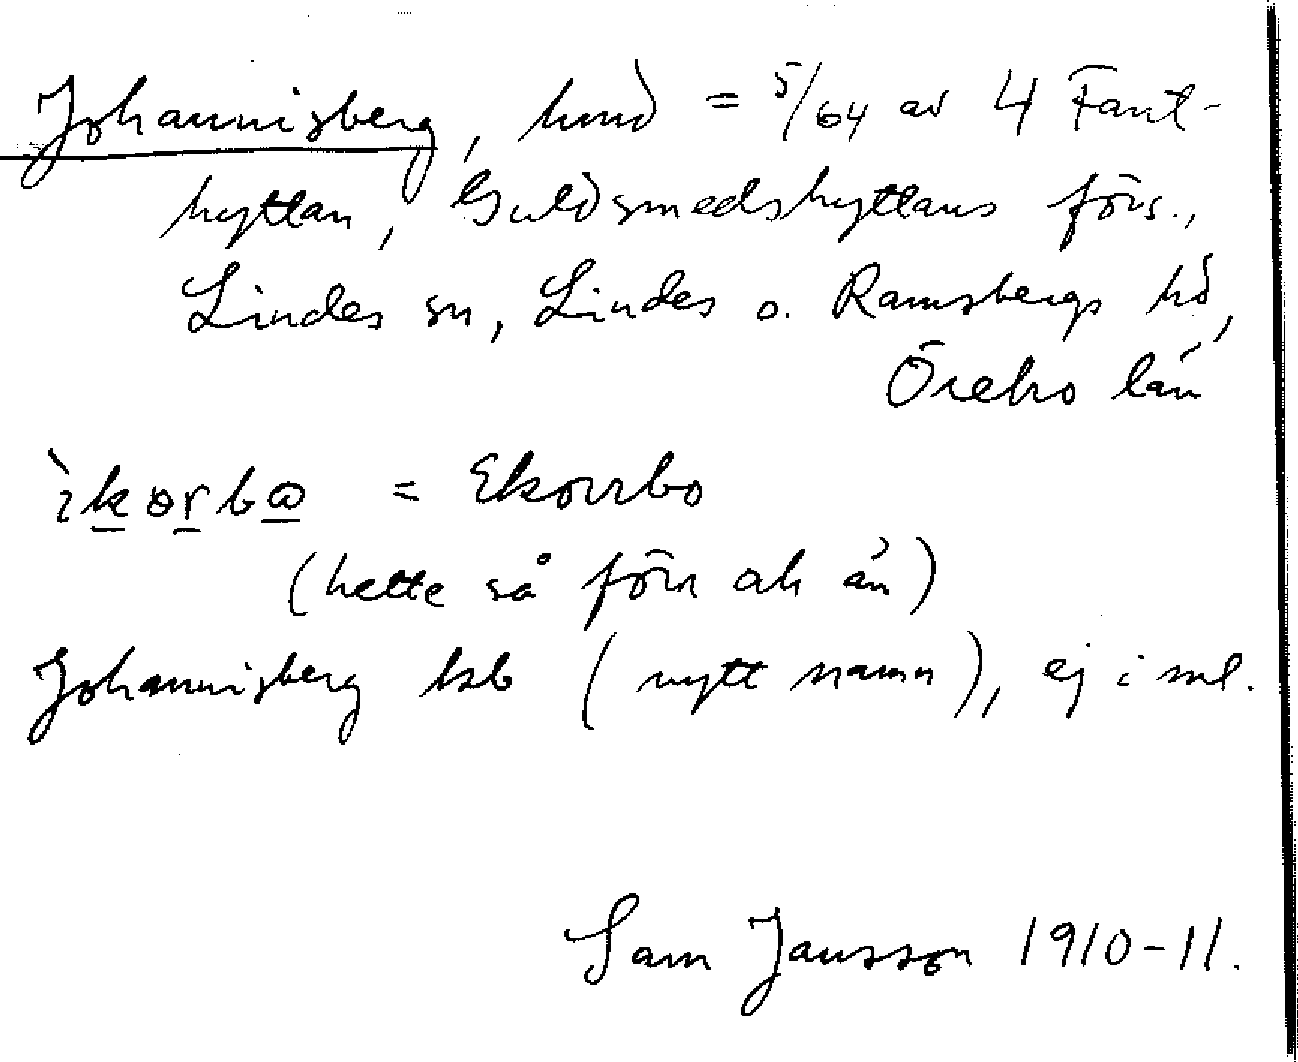 Johannisberg, hmd = 5/64 av 4 Fant-
hyttan, Guldsmedshyttans förs.,
Lindes sn, Lindes o. Ramsbergs hd,
Örebro län
= Ekorrbo
(hette så förr ock än)
Johannisberg bsb (nytt namn), ej i ml.
Sam Jansson 1910-11.